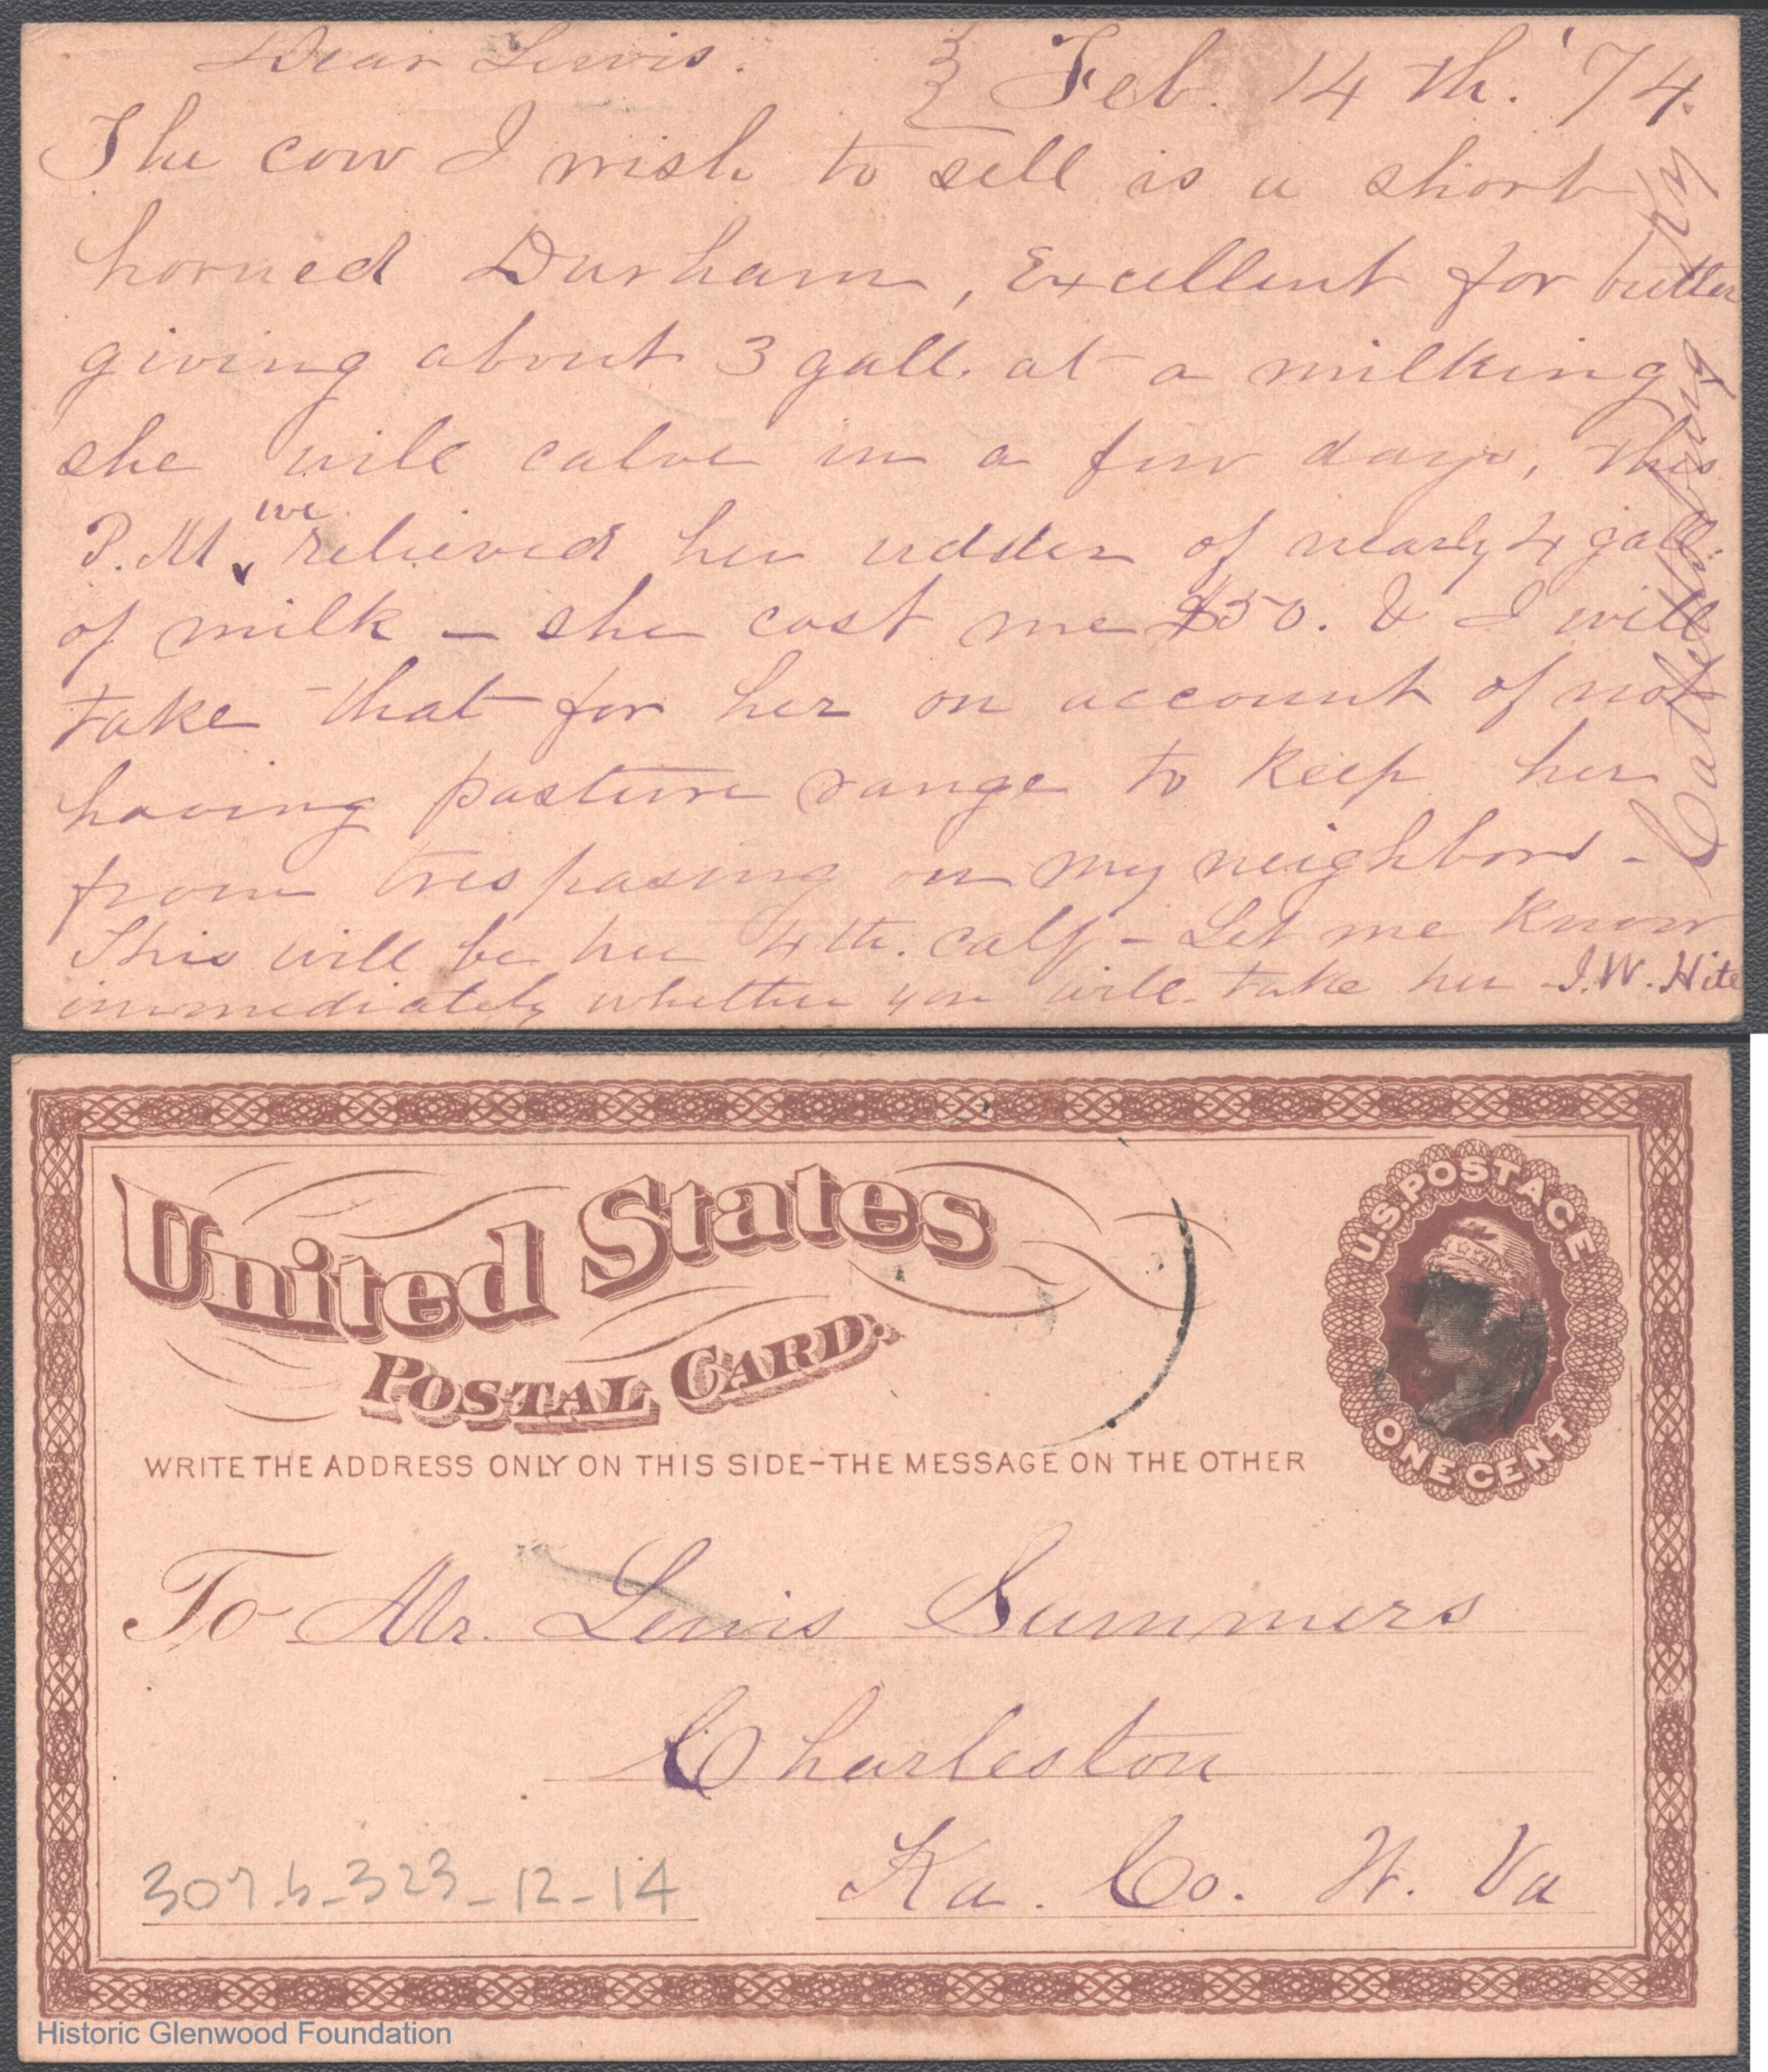 Dear Lewis. Feb. 14th. '74.
The cow I wish to sell is a short
horned Durham, Excellent for butter
giving about 3 gall. at a milking
she will calve in a few days, This
P.M. we relieved her udder of nearly 4 gall.
of milk — she cost me $50. & I will
take that for her on account of not
having pasture range to keep her
from trespasing on my neighbors -
This will be her 4th. calf - Let me know
immediately whether you will take her I.W. Hite
United States
Postal Card.
U.S. POSTAGE
ONE CENT
WRITE THE ADDRESS ONLY ON THIS SIDE-THE MESSAGE ON THE OTHER
To Mr. Lewis Summers
Charleston
Ka. Co. W. Va
307.b-323-12-14
Historic Glenwood Foundation